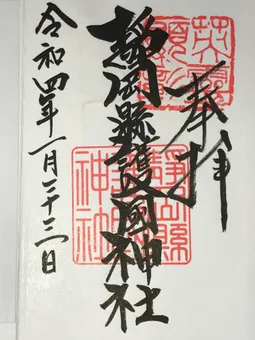 奉拝
靜岡縣護國神社
令和四年一月二十三日
英霊顕彰
靜岡縣護國神社